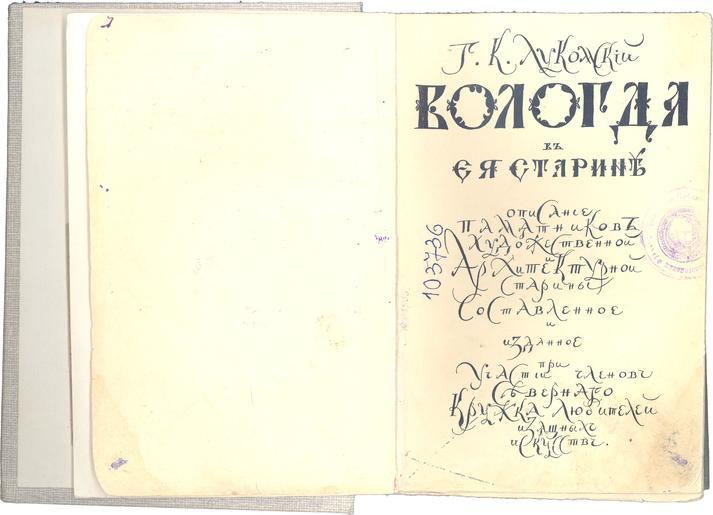 Г. К. Лукомскій
ВОЛОГДА
въ
ЕЯ СТАРИНѢ
описанiе
памятниковъ
художественной
и
Архитектурной
старины
Составленное
и
изданное
при
Участіи членовъ
Сѣвернаго
Кружка Любителей
изящныхъ
искусствъ.
103736